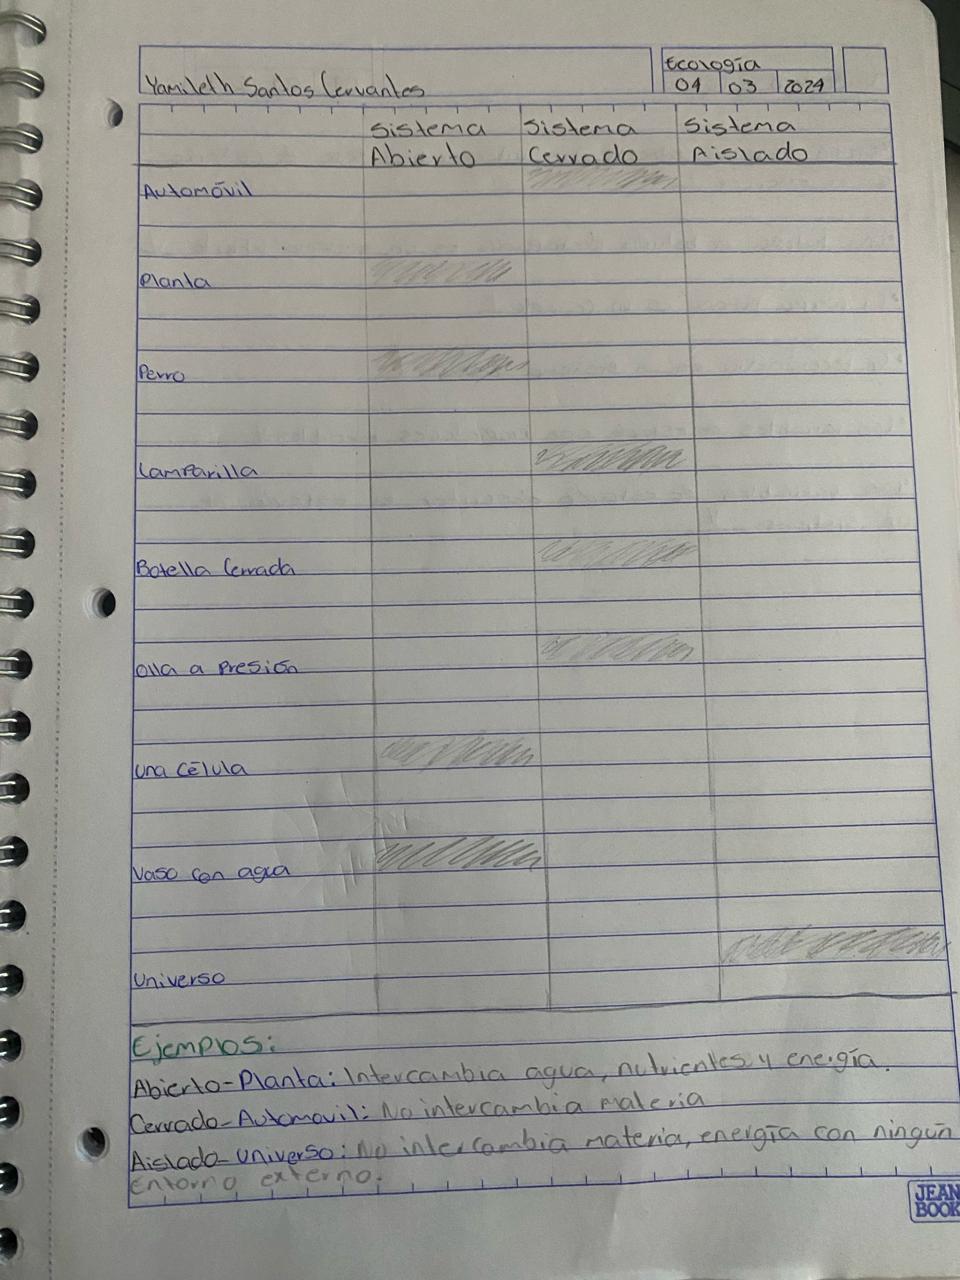 Ecología
Yamileth Santos Cervantes 04 03 2024
Sistema Sistema Sistema
Abierto Cerrado Aislado
Automóvil
Planta
Perro
Lamparilla
Botella Cerrada
Olla a Presión
Una Célula
Vaso con agua
Universo
Ejemplos:
Abierto-Planta: Intercambia agua, nutrientes y energía.
Cerrado-Automovil: No intercambia materia
Aislado-Universo: No intercambia materia, energía con ningún
entorno externo.
JEAN
BOOK